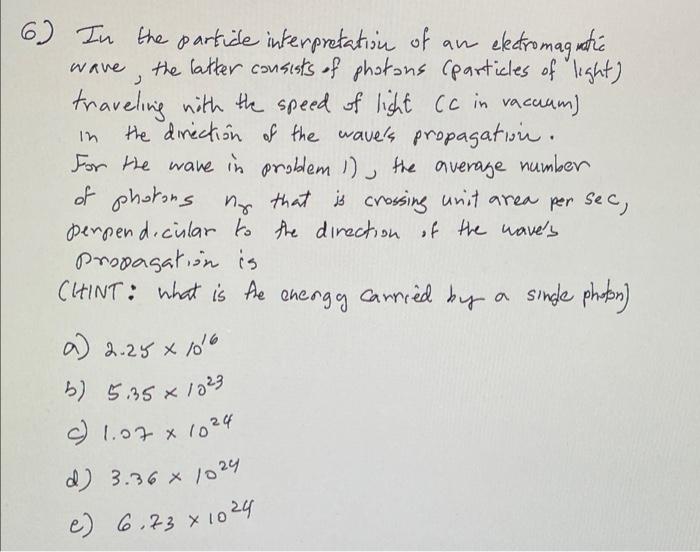 6) In the particle interpretation of an electromagnetic
wave, the latter consists of photons (particles of light)
traveling with the speed of light (c in vacuum)
in the direction of the wave's propagation.
For the wave in problem 1), the average number
of photons nγ that is crossing unit area per sec,
perpendicular to the direction of the wave's
propagation is
(HINT: what is the energy carried by a single photon)
a) 2.25 × 10^16
b) 5.35 × 10^23
c) 1.07 × 10^24
d) 3.36 × 10^24
e) 6.73 × 10^24